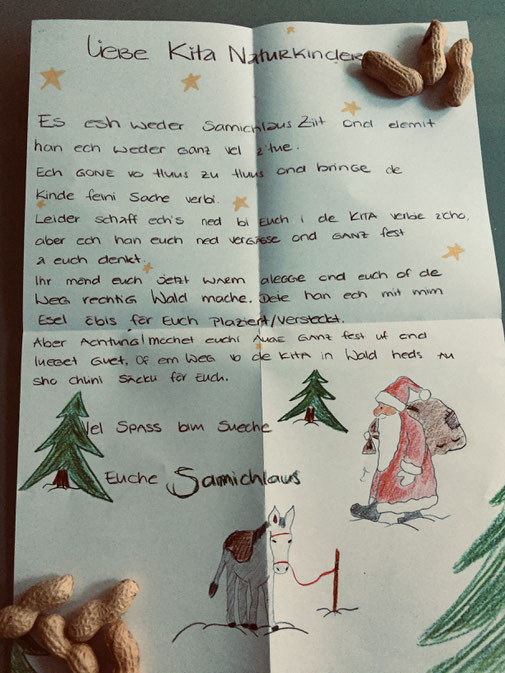 Liebe Kita Naturkinder
Es esh weder Samichlaus Ziit ond demit
han ech weder GANZ vel z'tue.
Ech GONE vo Huus zu Huus ond bringe de
Kinde feini Sache verbi.
Leider schaff ech's ned bi Euch i de KITA verbi z'cho,
aber ech han euch ned vergässe ond GANZ fest
a euch denkt.
Ihr mend euch jetzt warm alegge ond euch of de
Weg rechtig Wald mache. Dete han ech mit mim
Esel öbis för Euch Plaziert/Versteckt.
Aber Achtung! mochet euchi Auge GANZ fest uf ond
lueget Guet, Of em Weg vo de KITA in Wald heds au
sho chlini Säckli för Euch.
Vel Spass bim Sueche
Euche Samichlaus